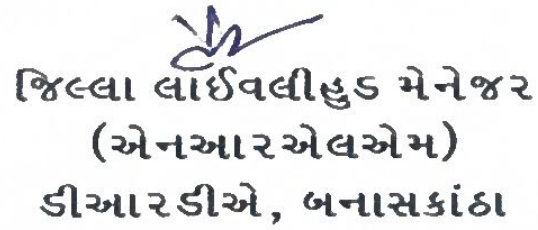 જિલ્લા લાઈવલીહુડ મેનેજર
(એનઆરએલએમ)
ડીઆરડીએ, બનાસકાંઠા